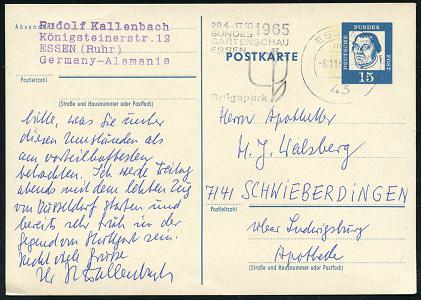 Absender:
Rudolf Kallenbach
Königsteinerstr.12
ESSEN (Ruhr)
Germany-Alemania
Postleitzahl
(Straße und Hausnummer oder Postfach)
bitte, was Sie unter
diesen Umständen als
am vorteilhaftesten
betrachten. Ich werde Freitag
abends mit dem letzten Zug
von Düsseldorf starten und
bereits sehr früh in der
Gegend von Stuttgart sein.
Recht viele Grüße
Ihr R Kallenbach
29.4.-17.10. 1965
BUNDES
GARTENSCHAU
ESSEN
Grugapark
POSTKARTE
43
DEUTSCHE BUNDESPOST
15
Herrn Apotheker
H. J. Walsberg
7141 SCHWIEBERDINGEN
Postleitzahl
über Ludwigsburg
Apotheke
(Straße und Hausnummer oder Postfach)